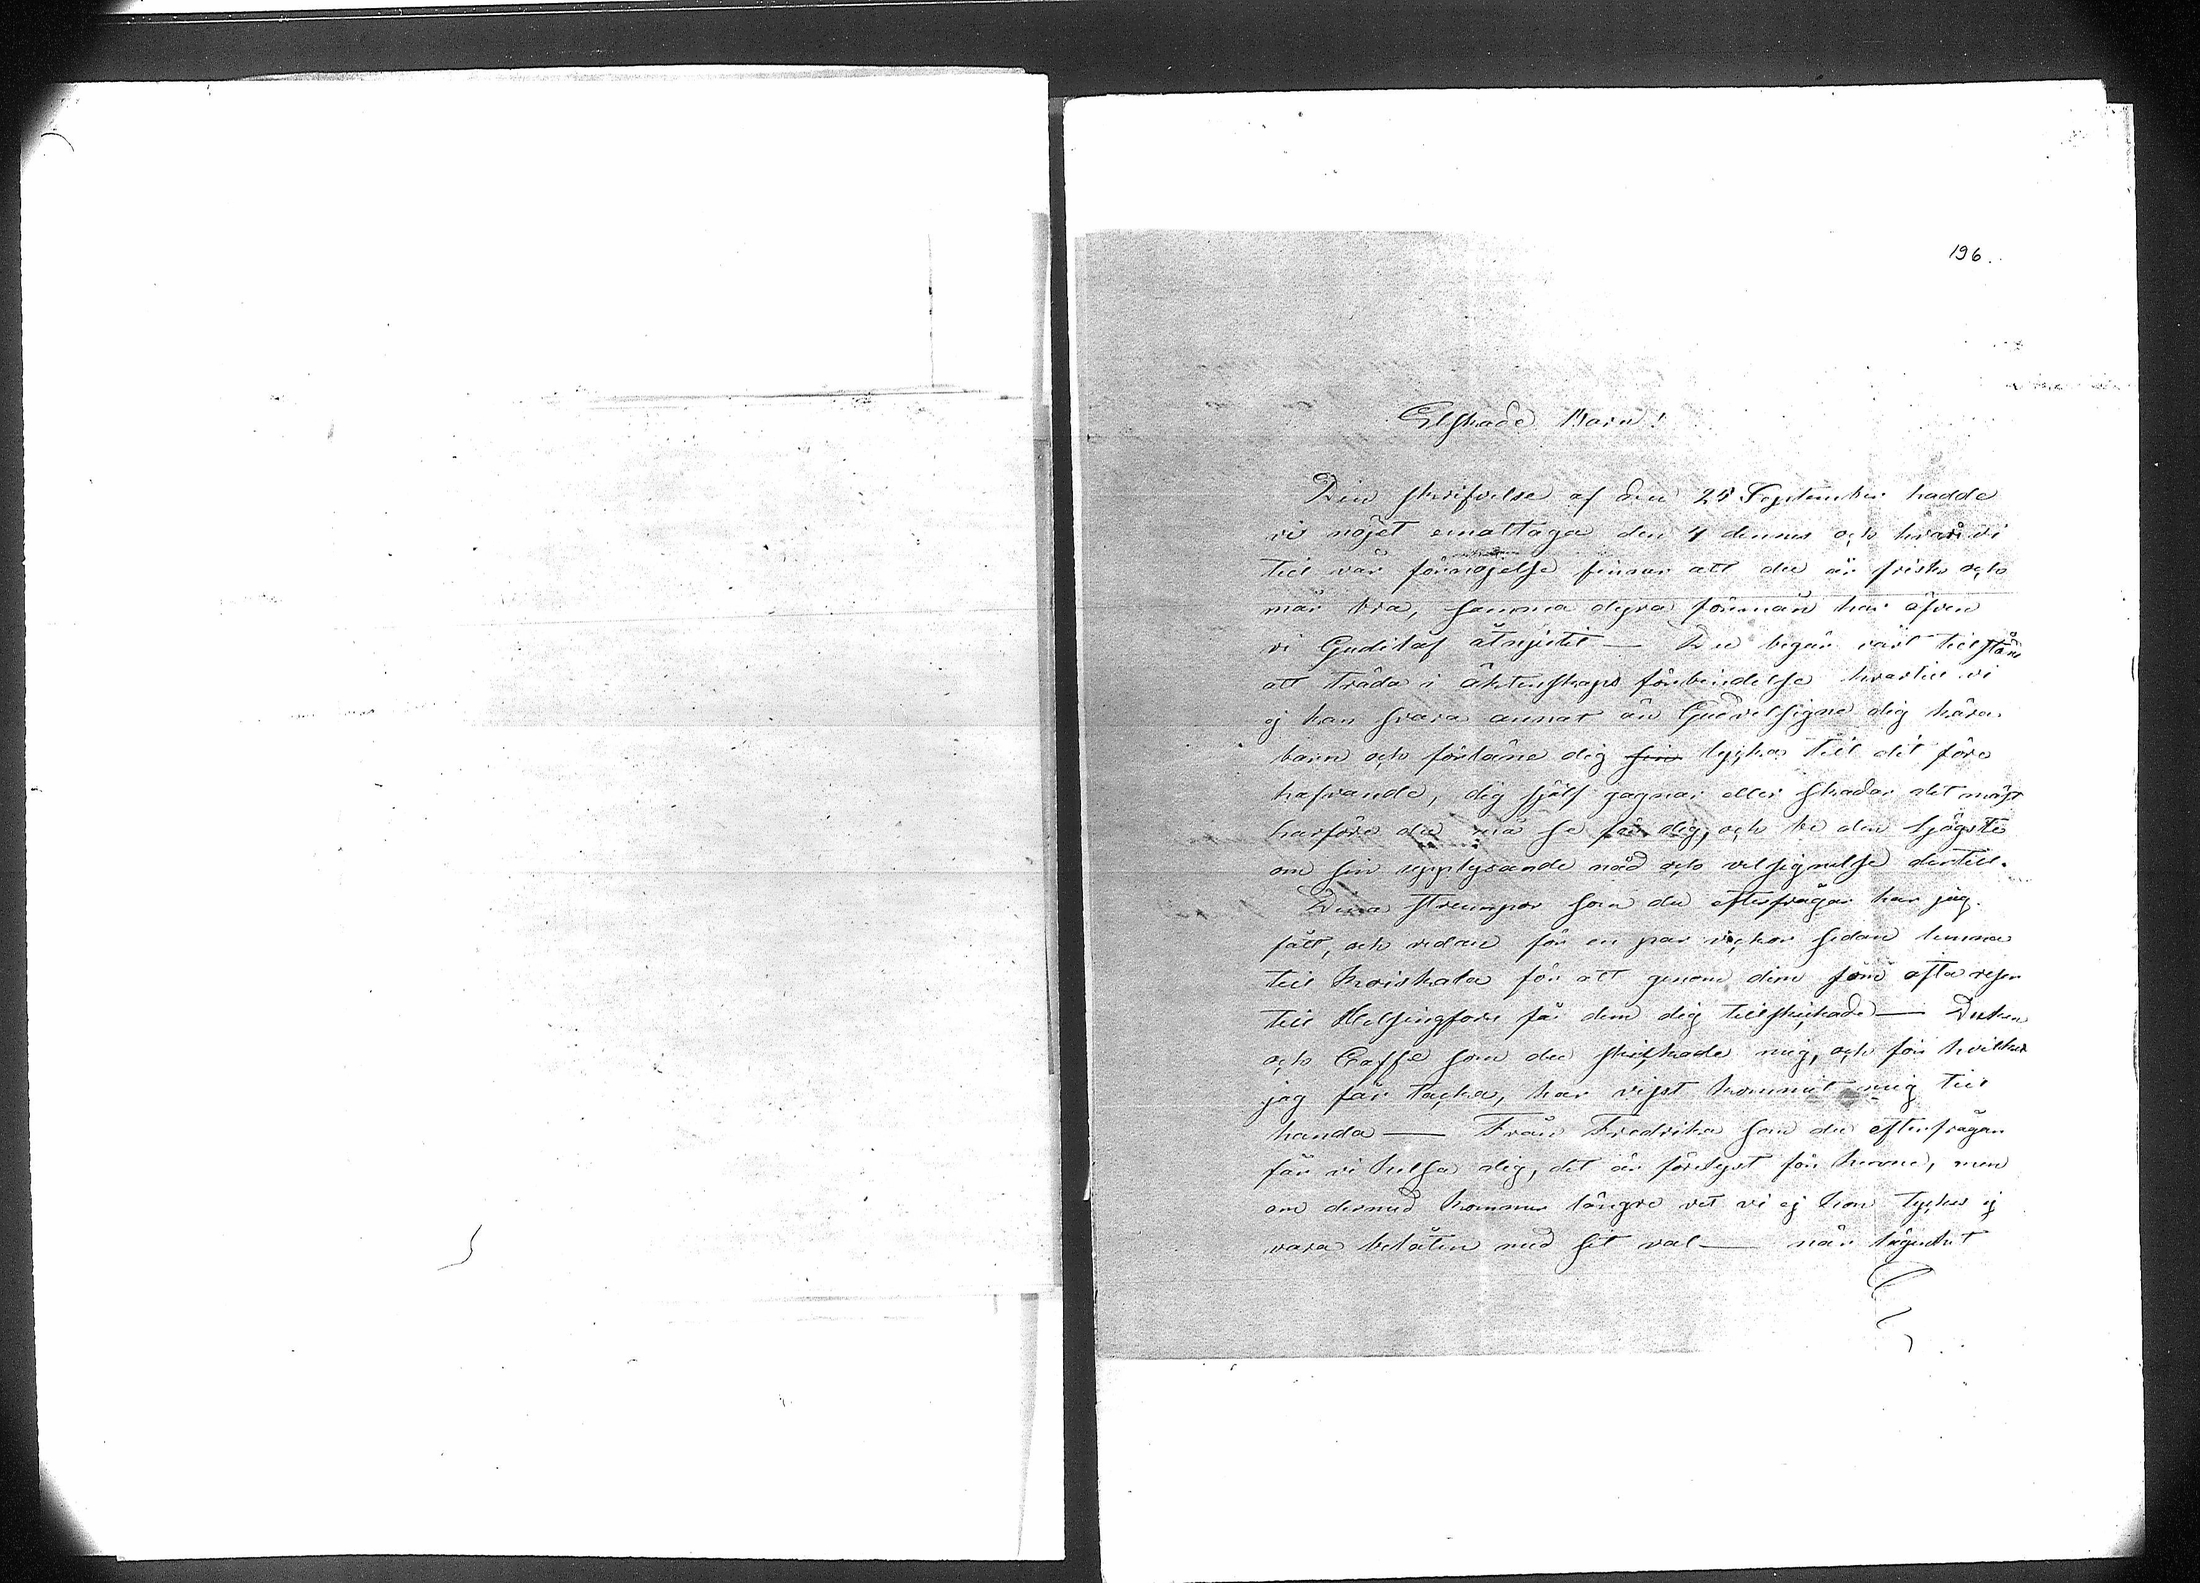 196.
Elskade Barn!
Din skrifvelse af den 25 September hadde
vi nöjet emottaga den 4 dennes och hvari vi
till vår förnöjelse finner att du är frisk och
mår bra, samma dyra förmån har äfven
vi Gudilåf åtnjutit — Du begär vårt tillstånd
att träda i äktenskaps förbindelse hvartill vi
ej kan svara annat än Gud velsigne dig kära
barn och förläne dig sin lycka till dit före
hafvande, dig sjelf gagnar eller skadar det mäst
harföre du må se för dig, och be den högste
om sin upplysande nåd och velsignelse dertill.
Dina strumpor som du efterfrågar har jag
fått, och redan för en par vickor sedan lemna
till Koiskala för att genom dem som ofta resa
till Helsingfors få dem dig tillskickade — Duken
och Caffe som du skickade mig, och för hvilket
jag får tacka, har visst kommit mig till
handa — Från Fredrika som du efterfrågar
får vi helsa dig, det är förlyst för henne, men
om dermed kommer längre vet vi ej hon tycks ej
vara belåten med sit val — när